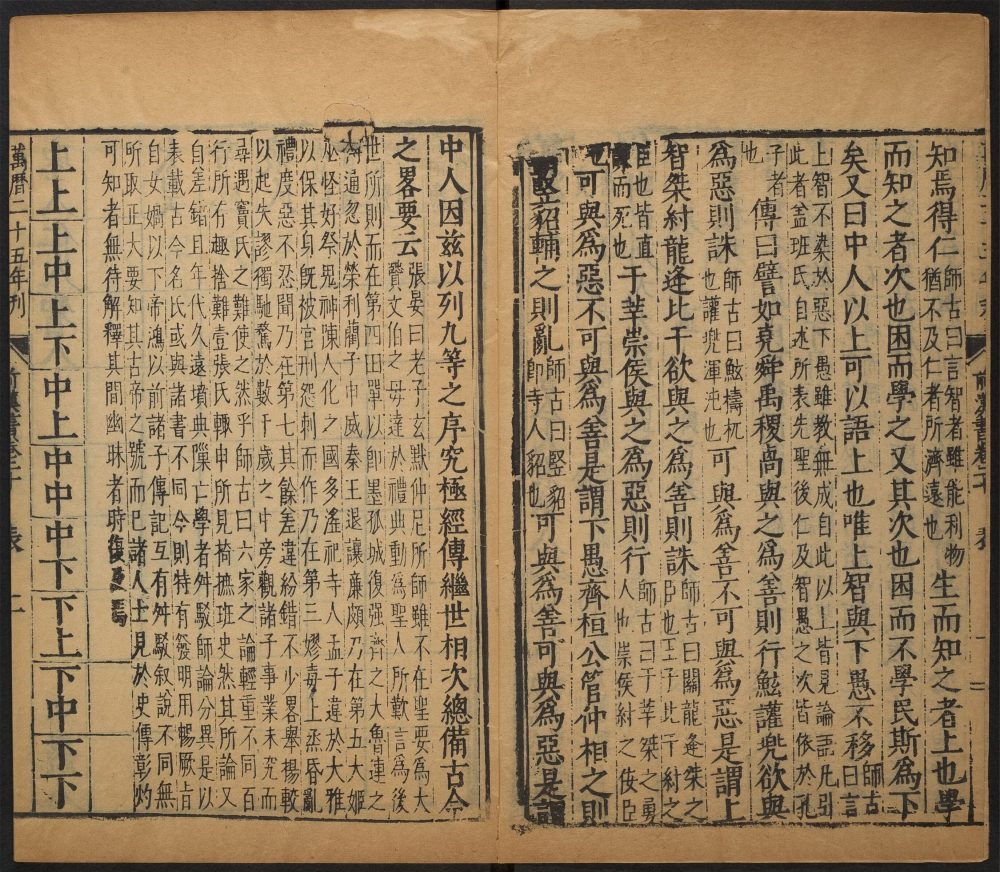 前漢書卷二十
知焉得仁師古曰言智者雖能利物
猶不及仁者所濟遠也生而知之者上也學
而知之者次也困而學之又其次也困而不學民斯為下
矣又曰中人以上可以語上也唯上智與下愚不移師古
曰言
上智不染於惡下愚雖教無成自此以上皆見論語凡引
此者盖班氏自述所表先聖後仁及智愚之次皆依於孔
子者
也傳曰譬如堯舜禹稷卨與之為善則行鮌讙兠欲與
為惡則誅師古曰鮌檮杌
也讙兠渾沌也可與為善不可與為惡是謂上
智桀紂龍逄比干欲與之為善則誅師古曰關龍逄桀之
臣也王子比干紂之
臣也皆直
諫而死也于莘崇侯與之為惡則行師古曰于莘桀之勇
人也崇侯紂之佞臣
也可與為惡不可與為善是謂下愚齊桓公管仲相之則
霸豎貂輔之則亂師古曰豎貂
即寺人貂也可與為善可與為惡是謂
中人因茲以列九等之序究極經傳繼世相次總備古今
之畧要云張晏曰老子玄默仲尼所師雖不在聖要為大
賢文伯之母達於禮典動為聖人所歎言為後
世所則而在第四田單以即墨孤城復强齊之大魯連之
博通忽於榮利藺子申威秦王退讓廉頗乃在第五大姬
巫怪好祭鬼神陳人化之國多淫祀寺人孟子違於大雅
以保其身旣被宫刑怨刺而作乃在第三嫪毐上烝昏亂
禮度惡不忍聞乃在第七其餘差違紛錯不少畧舉揚較
以起失謬獨馳騖於數千歲之中旁觀諸子事業未究而
尋遇竇氏之難使之然乎師古曰六家之論輕重不同百
行所有趣捨難壹張氏輙申所見掎摭班史然其所論又
自差錯且年代久遠墳典隳亡學者舛駁師論分異是以
表載古今名氏或與諸書不同今則特有發明用暢厥旨
自女媧以下帝鴻以前諸子傳記互有舛駁叙說不同無
所取正大要知其古帝之號而已諸人士見於史傳彰灼
可知者無待解釋其間幽昧者時復及焉
上上
上中
上下
中上
中中
中下
下上
下中
下下
萬曆二十五年刊
前漢書卷二十 表 二